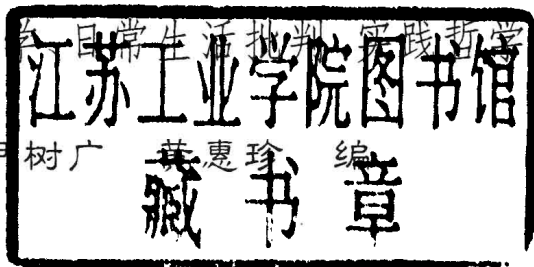 日常生活批判 实践哲学
江苏工业学院图书馆
树广 黄惠珍 编
藏书章